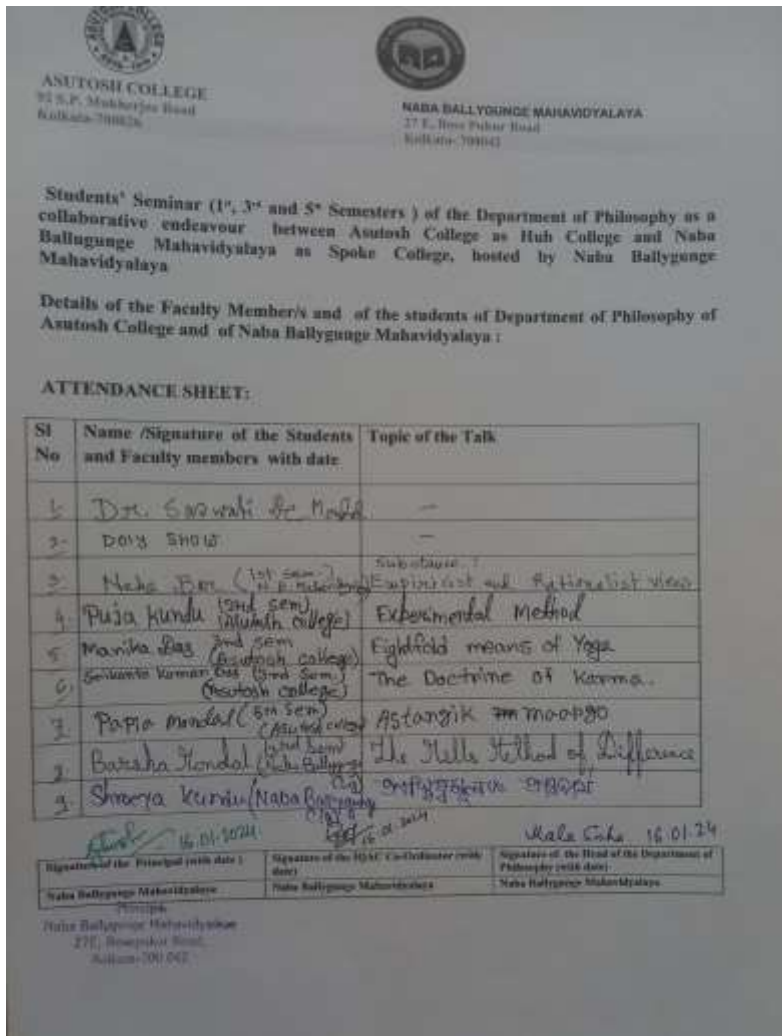 ASUTOSH COLLEGE
92 S.P. Mukherjee Road
Kolkata-700026
NABA BALLYGUNGE MAHAVIDYALAYA
27 E, Bose Pukur Road
Kolkata-700042
Students' Seminar (1st, 3rd and 5th Semesters ) of the Department of Philosophy as a
collaborative endeavour between Asutosh College as Hub College and Naba
Ballugunge Mahavidyalaya as Spoke College, hosted by Naba Ballygunge
Mahavidyalaya
Details of the Faculty Member/s and of the students of Department of Philosophy of
Asutosh College and of Naba Ballygunge Mahavidyalaya :
ATTENDANCE SHEET:
Sl No Name /Signature of the Students and Faculty members with date Topic of the Talk
1. Dr. De —
2. —
3. Neha (1st Sem) Substance : Empiricist and Rationalist view
4. Puja Kundu (3rd sem) (Asutosh college) Experimental Method
5 Manika Das 3rd sem (Asutosh college) Eightfold means of Yoga
6. Kumar Das (3rd Sem) (Asutosh college) The Doctrine of Karma.
7. Papia mondal (5th Sem) (Asutosh college) Astangik maargo
Barsha Mondal (3rd Sem) (Naba Ballygunge The Mills Method of Difference
9. Shreya Kundu (Naba Ballygunge
16.01.2024 16.01.2024 Mala Saha 16.01.24
Signature of the Principal (with date ) Signature of the IQAC Co-Ordinator (with date) Signature of the Head of the Department of Philosophy (with date)
Naba Ballygunge Mahavidyalaya Naba Ballygunge Mahavidyalaya Naba Ballygunge Mahavidyalaya
Principal
Naba Ballygunge Mahavidyalaya
27E, Bosepukur Road,
Kolkata-700 042